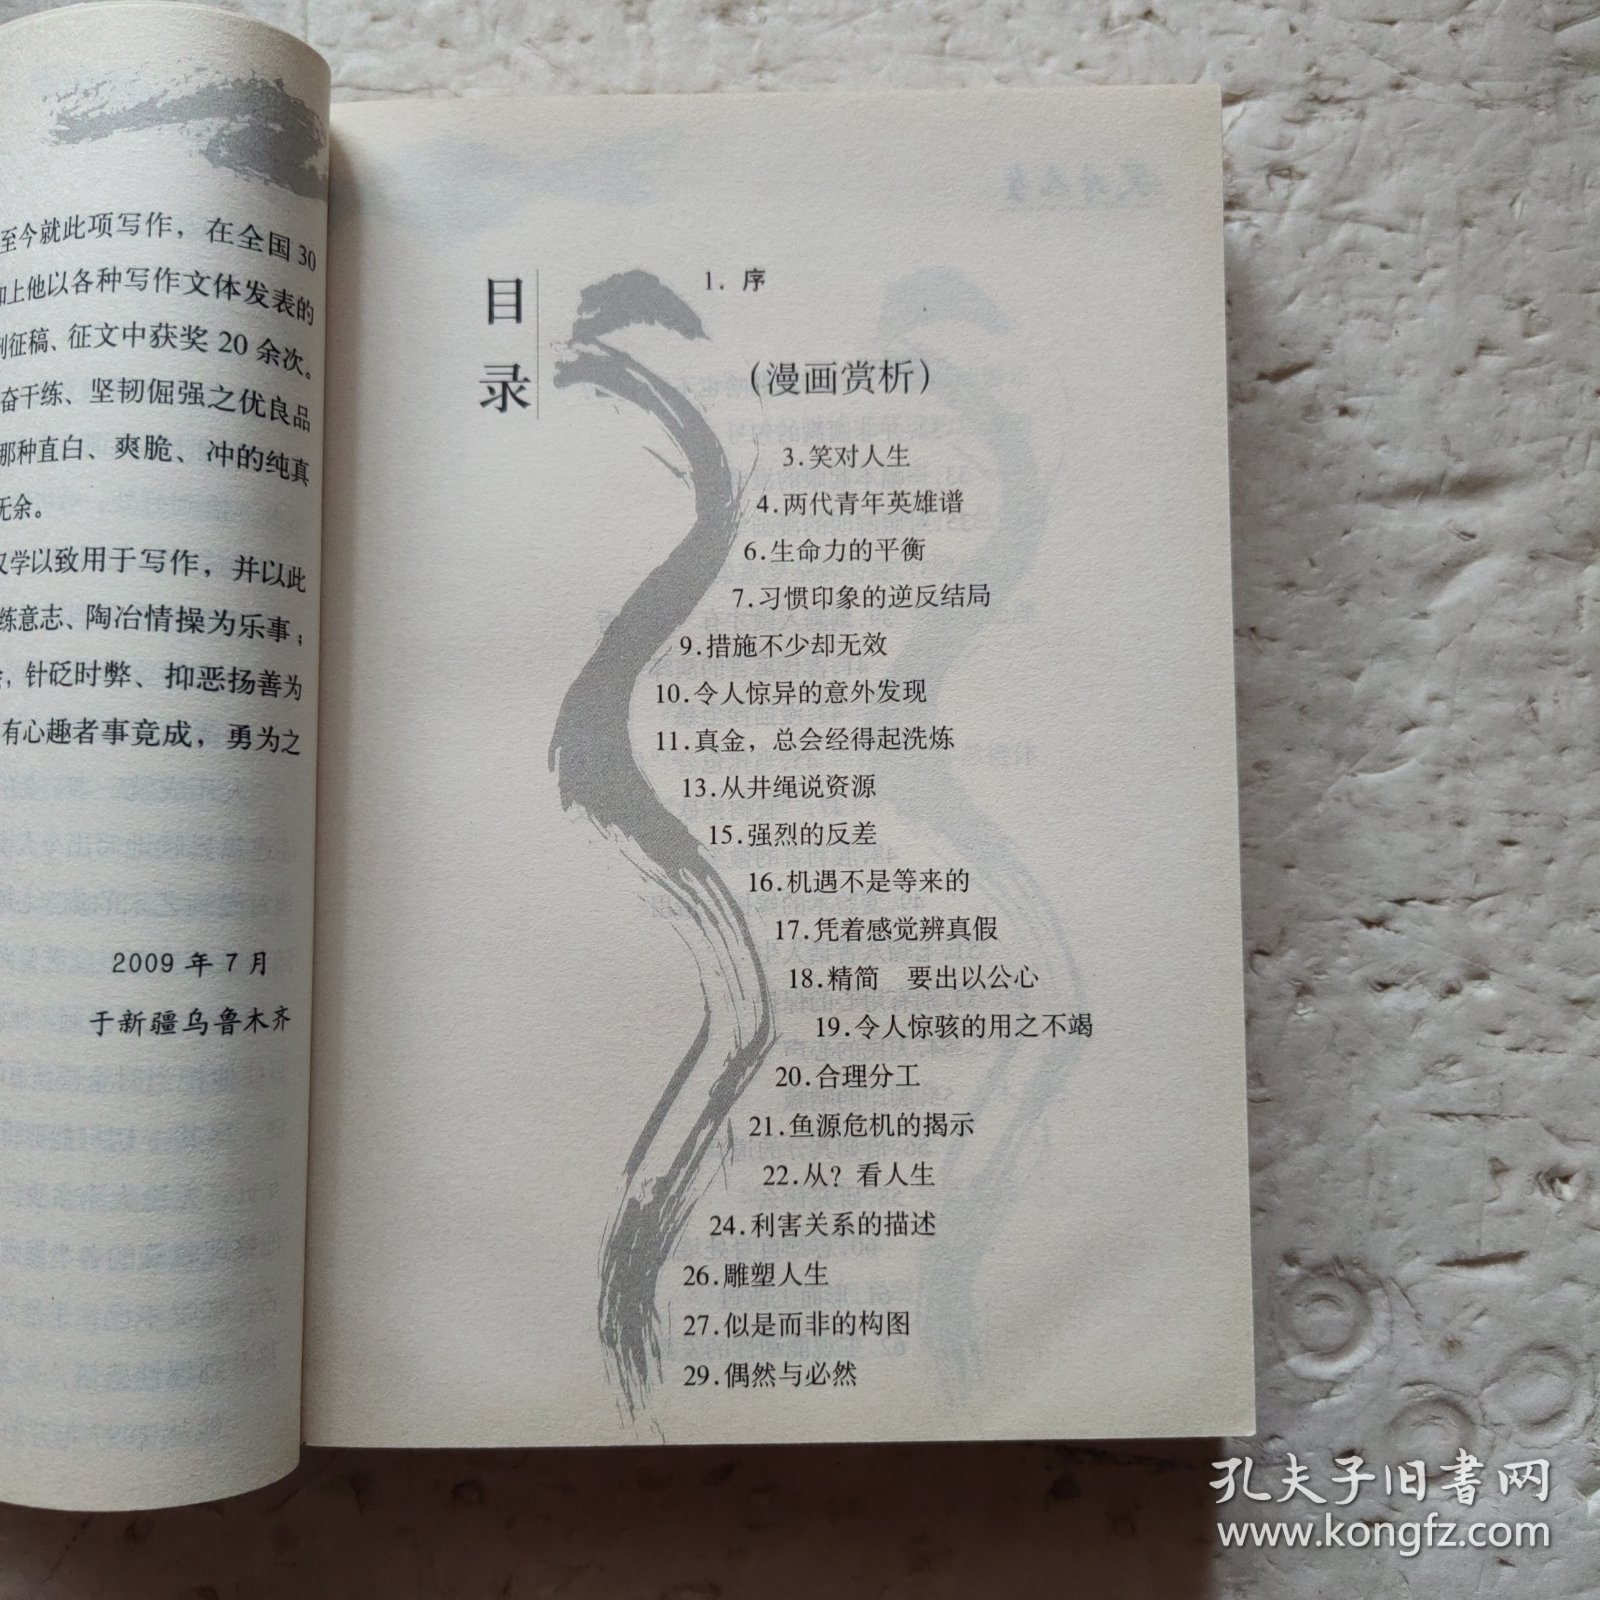 至今就此项写作，在全国30
上他以各种写作文体发表的
征稿、征文中获奖20余次。
奋干练、坚韧倔强之优良品
那种直白、爽脆、冲的纯真
无余。
学以致用于写作，并以此
练意志、陶冶情操为乐事；
，针砭时弊、抑恶扬善为
有心趣者事竟成，勇为之
2009年7月
于新疆乌鲁木齐
目录
1. 序
（漫画赏析）
3.笑对人生
4.两代青年英雄谱
6.生命力的平衡
7.习惯印象的逆反结局
9.措施不少却无效
10.令人惊异的意外发现
11.真金，总会经得起洗炼
13.从井绳说资源
15.强烈的反差
16.机遇不是等来的
17.凭着感觉辨真假
18.精简　要出以公心
19.令人惊骇的用之不竭
20.合理分工
21.鱼源危机的揭示
22.从？看人生
24.利害关系的描述
26.雕塑人生
27.似是而非的构图
29.偶然与必然
孔夫子旧书网
www.kongfz.com